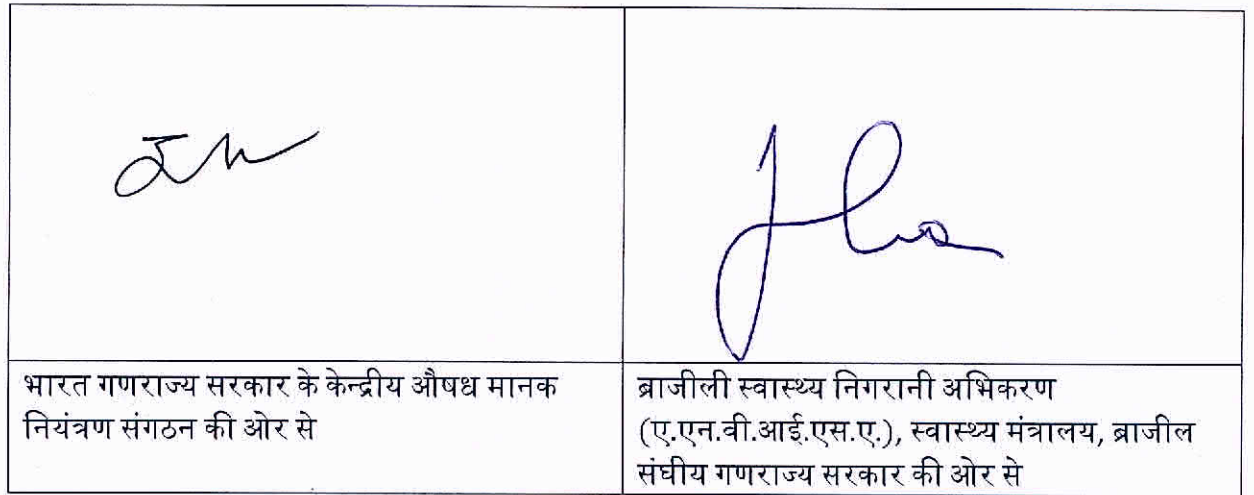 भारत गणराज्य सरकार के केन्द्रीय औषध मानक
नियंत्रण संगठन की ओर से
ब्राजीली स्वास्थ्य निगरानी अभिकरण
(ए.एन.वी.आई.एस.ए.), स्वास्थ्य मंत्रालय, ब्राजील
संघीय गणराज्य सरकार की ओर से